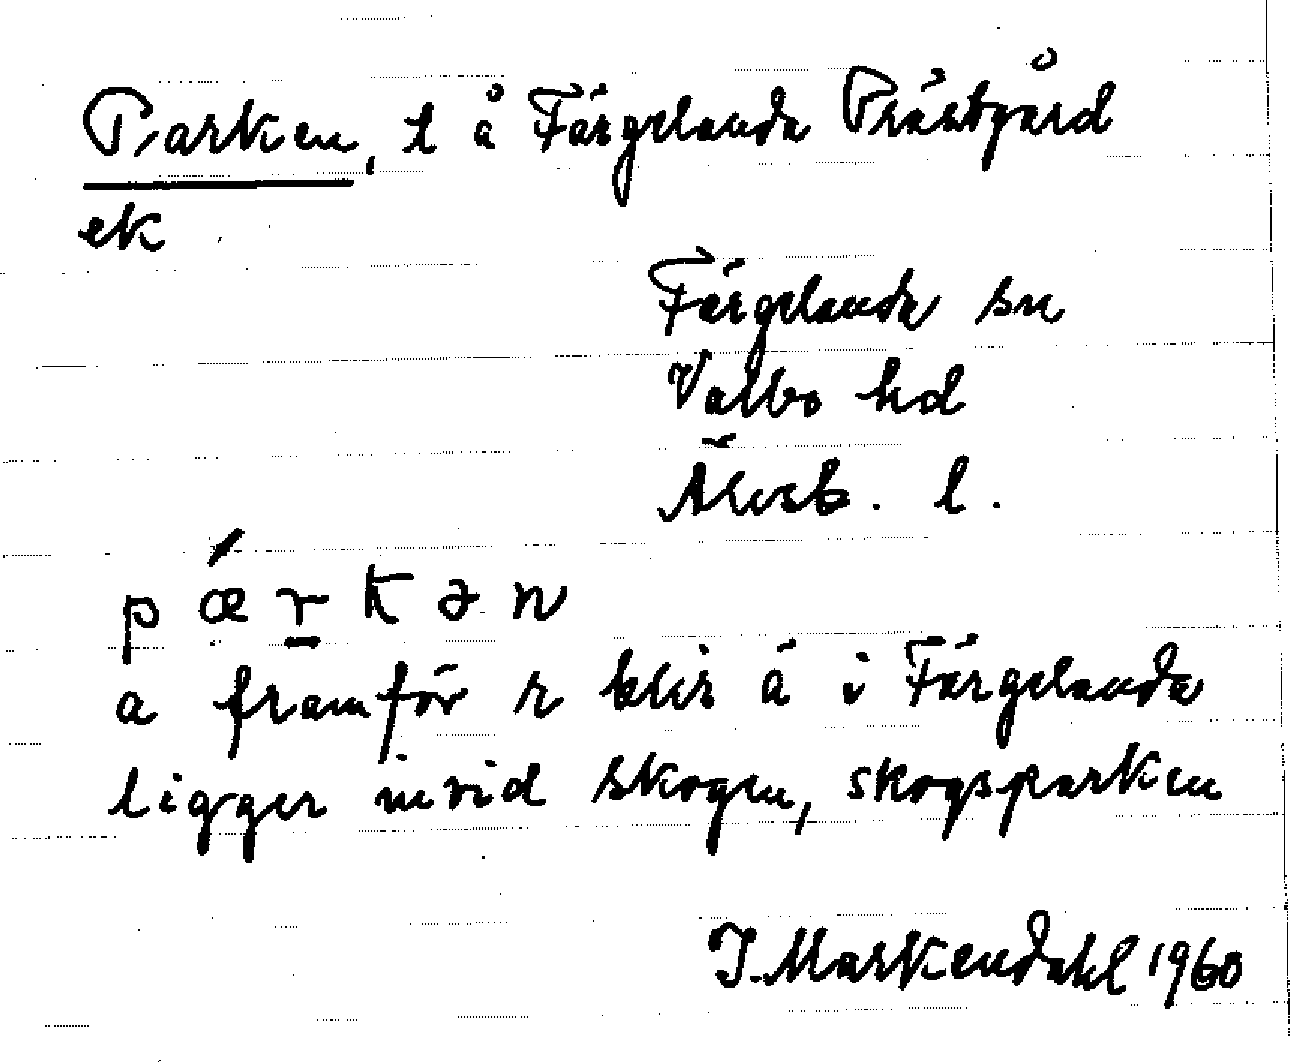 Parken, t å Färgelanda Prästgård
ek
Färgelanda sn
Valbo hd
Älvsb. l.
p ǽ r̠ k ə n
a framför r blir ä i Färgelanda
ligger invid skogen, skogsparken
J. Markendahl 1960